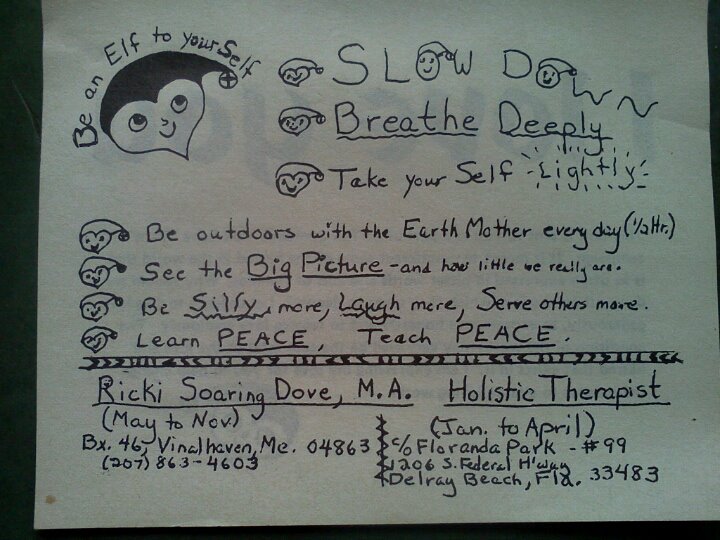 Be an Elf to yourSelf
SLOW DOWN
Breathe Deeply
Take your Self Lightly
Be outdoors with the Earth Mother every day (1/2 Hr.)
See the Big Picture - and how little we really are.
Be Silly more, Laugh more, Serve others more.
Learn PEACE, Teach PEACE.
Ricki Soaring Dove, M.A. Holistic Therapist
(May to Nov.)
Bx. 46, Vinalhaven, Me. 04863
(207) 863-4603
(Jan. to April)
c/o Floranda Park - #99
1206 S. Federal H'way
Delray Beach, Fla. 33483